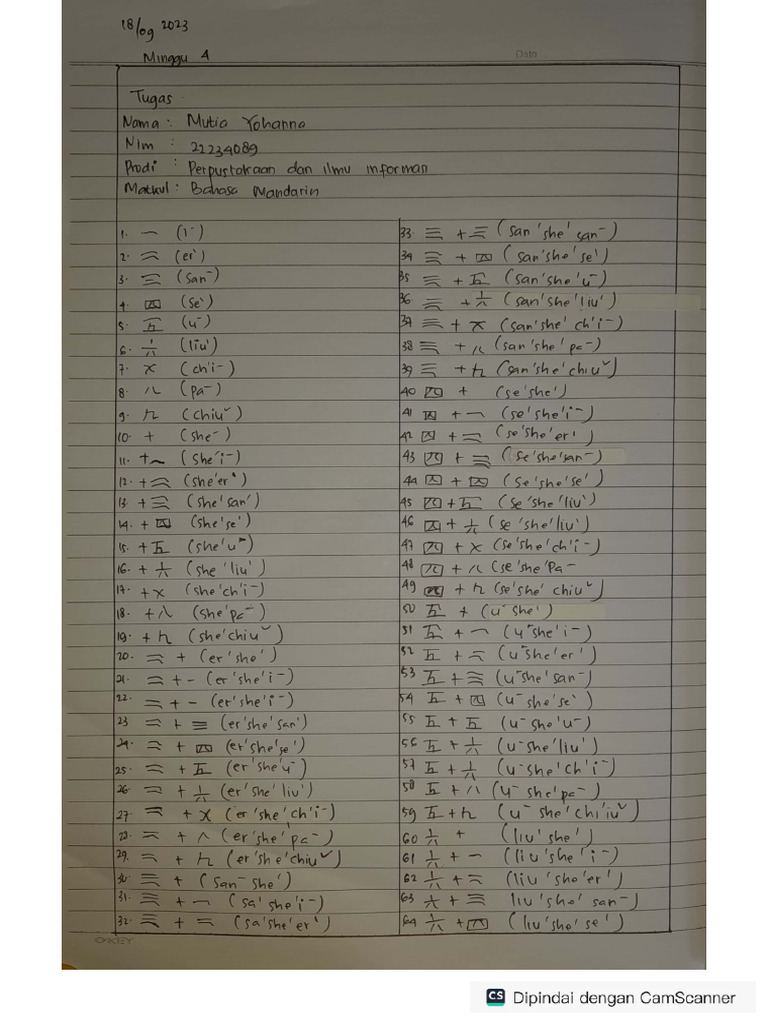 18/09 2023
Minggu 4
Date
Tugas
Nama : Mutia Yohanna
Nim : 22234089
Prodi : Perpustakaan dan ilmu informasi
Matkul : Bahasa Mandarin
1. 一 (i-)
2. 二 (er`)
3. 三 (san-)
4. 四 (se`)
5. 五 (u-)
6. 六 (liu')
7. X (ch'i-)
8. 八 (pa-)
9. 九 (chiuˇ)
10. + (she-)
11. +一 (she'i-)
12. +二 (she'er`)
13. +三 (she'san')
14. +四 (she'se`)
15. +五 (she'u-)
16. +六 (she'liu')
17. +X (she'ch'i-)
18. +八 (she'pa-)
19. +九 (she'chiuˇ)
20. 二 + (er'she')
21. 二 + - (er'she'i-)
22. 二 + - (er'she'i-)
23 二 + 三 (er'she'san')
24. 二 + 四 (er'she'se')
25. 二 + 五 (er'she'u-)
26. 二 + 六 (er'she'liu')
27 二 + X (er'she'ch'i-)
28. 二 + 八 (er'she'pa-)
29. 二 + 九 (er'she'chiuˇ)
30. 三 + (san-she')
31. 三 + 一 (sa'she'i-)
32. 三 + 二 (sa'she'er`)
33. 三 + 三 (san'she'san-)
34 三 + 四 (san'she'se`)
35 三 + 五 (san'she'u-)
36 三 + 六 (san'she'liu')
37 三 + X (san'she'ch'i-)
38 三 + 八 (san'she'pa-)
39 三 + 九 (san'she'chiuˇ)
40 四 + (se'she')
41 四 + 一 (se'she'i-)
42 四 + 二 (se'she'er')
43 四 + 三 (se'she'san-)
44 四 + 四 (se'she'se')
45 四 + 五 (se'she'liu`)
46 四 + 六 (se'she'liu`)
47 四 + X (se'she'ch'i-)
48 四 + 八 (se'she'pa-
49 四 + 九 (se'she'chiuˇ)
50 五 + (u-she')
51 五 + 一 (u-she'i-)
52 五 + 二 (u-she'er')
53 五 + 三 (u-she'san-)
54 五 + 四 (u-she'se`)
55 五 + 五 (u-she'u-)
56 五 + 六 (u-she'liu`)
57 五 + 六 (u-she'ch'i-)
58 五 + 八 (u-she'pa-)
59 五 + 九 (u-she'chi'iuˇ)
60 六 + (liu'she')
61 六 + 一 (liu'she'i-)
62 六 + 二 (liu'she'er')
63 六 + 三 liu'she'san-)
64 六 + 四 (liu'she'se`)
OKEY
CS Dipindai dengan CamScanner